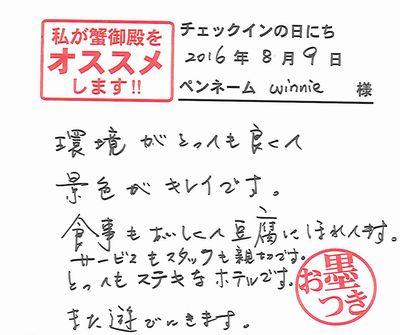 私が蟹御殿を
オススメ
します!!
チェックインの日にち
2016年8月9日
ペンネーム winnie 様
環境がとっても良くて
景色がキレイです。
食事もおいしくて豆腐にほれてます。
サービスもスタッフも親切です。
とってもステキなホテルです。
また遊びにきます。
お墨つき